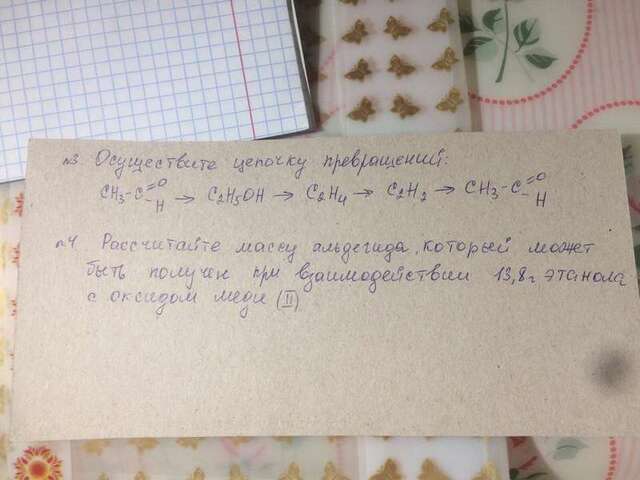 №3. Осуществите цепочку превращений:
CH₃-C=O-H → C₂H₅OH → C₂H₄ → C₂H₂ → CH₃-C=O-H
№4. Рассчитайте массу альдегида, который может
быть получен при взаимодействии 13,8 г этанола
с оксидом меди (II)